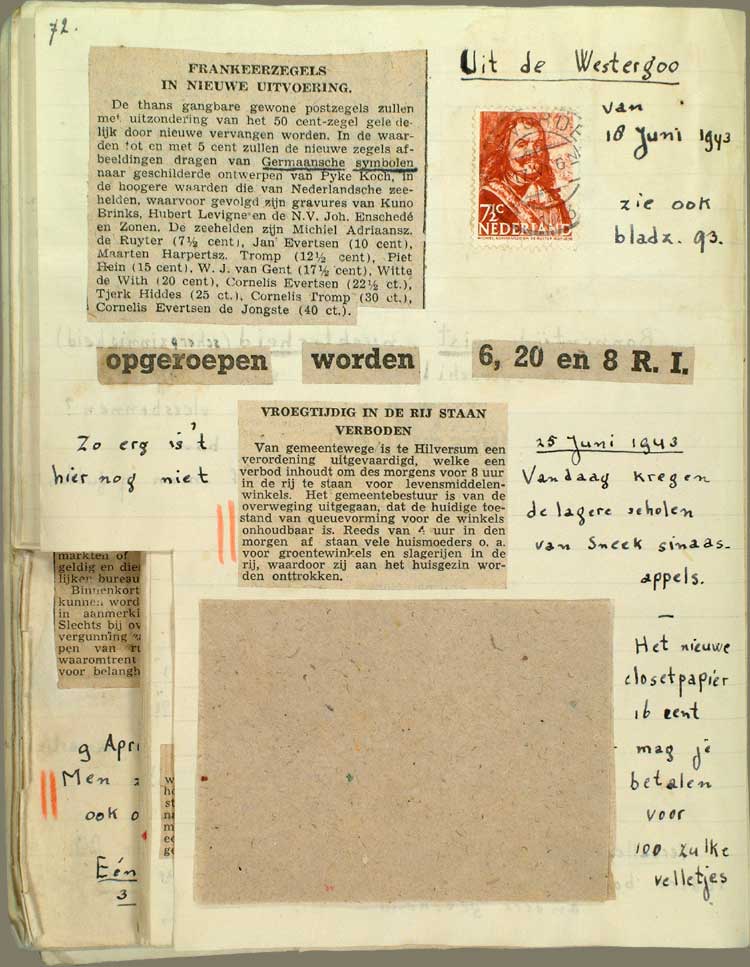 72.
FRANKEERZEGELS
IN NIEUWE UITVOERING.
De thans gangbare gewone postzegels zullen
met uitzondering van het 50 cent-zegel gele de-
lijk door nieuwe vervangen worden. In de waar-
den tot en met 5 cent zullen de nieuwe zegels af-
beeldingen dragen van Germaansche symbolen
naar geschilderde ontwerpen van Pyke Koch, in
de hoogere waarden die van Nederlandsche zee-
helden, waarvoor gevolgd zijn gravures van Kuno
Brinks, Hubert Levigne en de N.V. Joh. Enschedé
en Zonen. De zeehelden zijn Michiel Adriaansz.
de Ruyter (7½ cent), Jan Evertsen (10 cent),
Maarten Harpertsz. Tromp (12½ cent), Piet
Hein (15 cent), W. J. van Gent (17½ cent), Witte
de With (20 cent), Cornelis Evertsen (22½ ct.),
Tjerk Hiddes (25 ct.), Cornelis Tromp (30 ct.),
Cornelis Evertsen de Jongste (40 ct.).
Uit de Westergoo
van
18 Juni 1943
zie ook
bladz. 93.
7½ c
NEDERLAND
opgeroepen worden 6, 20 en 8 R. I.
Zo erg is 't
hier nog niet
VROEGTIJDIG IN DE RIJ STAAN
VERBODEN
Van gemeentewege is te Hilversum een
verordening uitgevaardigd, welke een
verbod inhoudt om des morgens voor 8 uur
in de rij te staan voor levensmiddelen-
winkels. Het gemeentebestuur is van de
overweging uitgegaan, dat de huidige toe-
stand van queuevorming voor de winkels
onhoudbaar is. Reeds van 4 uur in den
morgen af staan vele huismoeders o. a.
voor groentewinkels en slagerijen in de
rij, waardoor zij aan het huisgezin wor-
den onttrokken.
25 Juni 1943
Vandaag kregen
de lagere scholen
van Sneek sinaas-
appels.
—
Het nieuwe
closetpapier
16 cent
mag je
betalen
voor
100 zulke
velletjes
markten of
geldig en die
lijker bureau
Binnenkort
kunnen word
in aanmerki
Slechts bij ov
vergunning
pen van ru
waaromtrent
voor belangh
9 Apri
Men
ook o
Eén
3